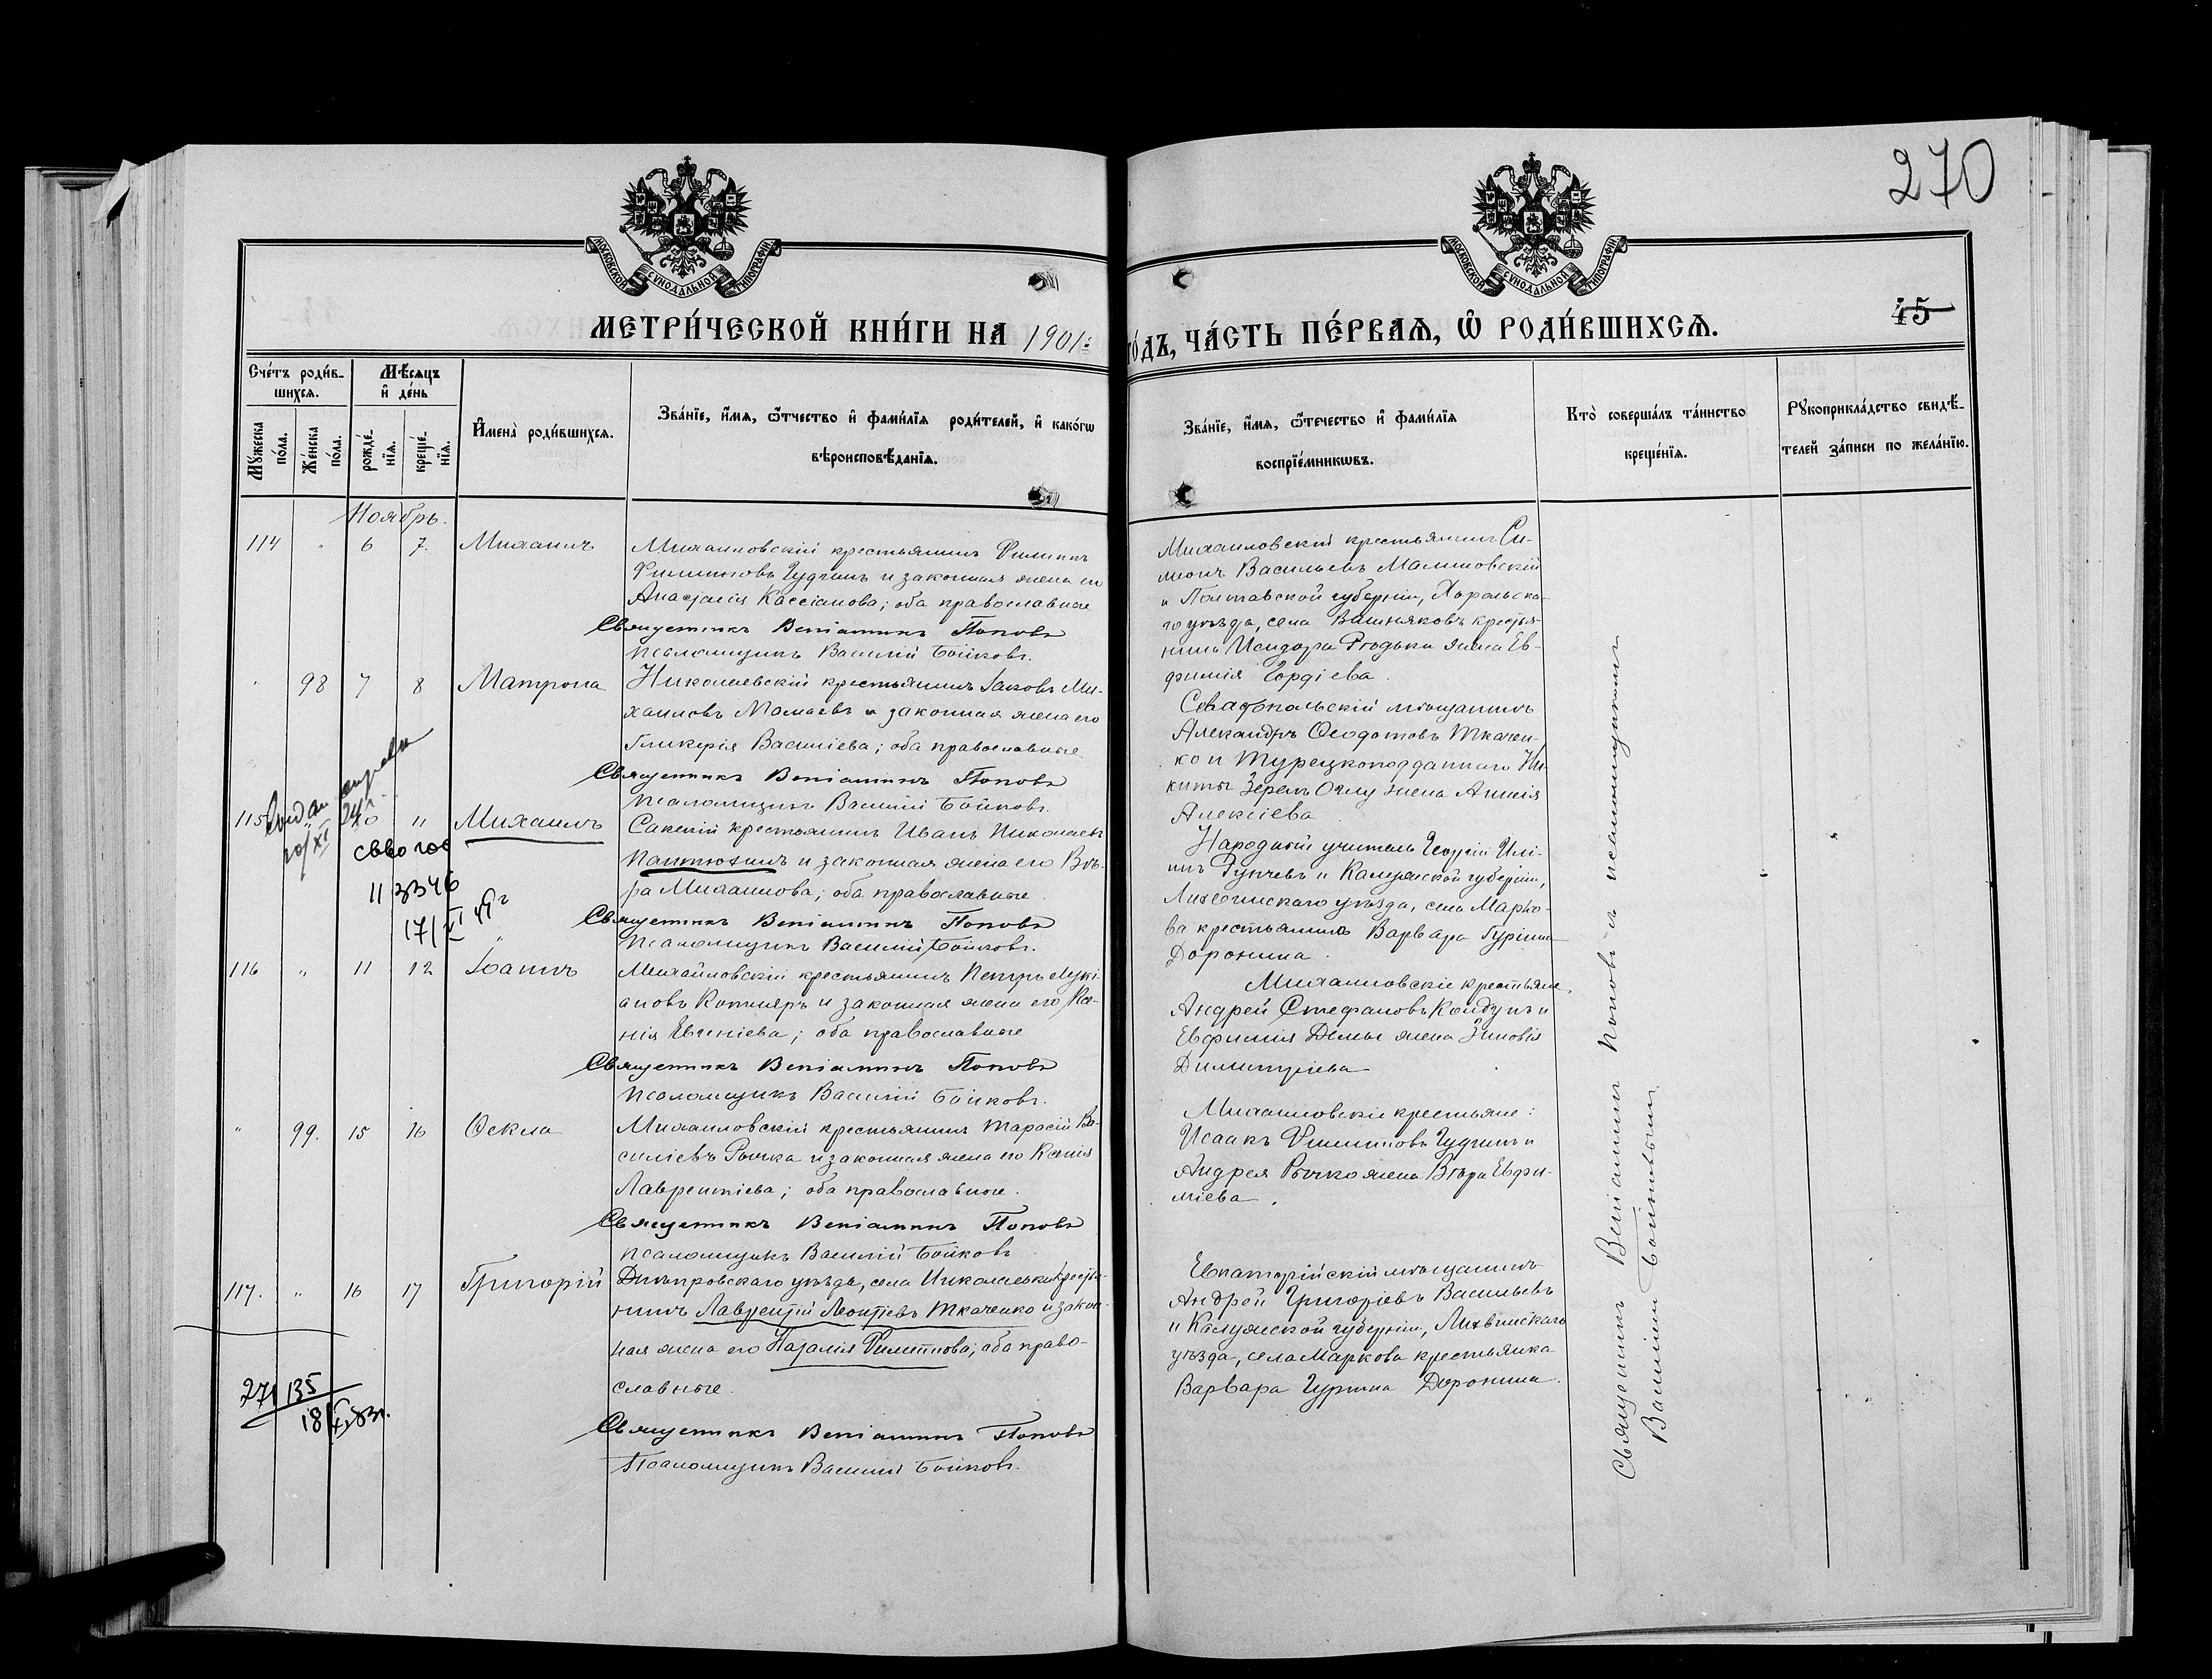 270
МОСКОВСКОЙ СѴНОДАЛЬНОЙ ТИПОГРАФІИ
МОСКОВСКОЙ СѴНОДАЛЬНОЙ ТИПОГРАФІИ
МЕТРИ́ЧЕСКОЙ КНИ́ГИ НА 1901
го́дъ, ЧА́СТЬ ПЕ́РВАѦ, Ѿ РОДИ́ВШИХСѦ.
45
Сче́тъ роди́в-
шихсѧ.
Мѣ́сѧцъ
и҆ де́нь
Мꙋ́жеска
по́ла.
Же́нска
по́ла.
рожде́-
нїѧ.
креще́-
нїѧ.
И҆мена̀ роди́вшихсѧ.
Зва́нїе, и҆́мѧ, ѻ҆́тчество и҆ фами́лїѧ роди́телей, и҆ како́гѡ
вѣроисповѣ́данїѧ.
Зва́нїе, и҆́мѧ, ѻ҆те́чество и҆ фами́лїѧ
воспрїе́мникѡвъ.
Кто̀ соверша́лъ та́инство
креще́нїѧ.
Рꙋкоприкла́дство свидѣ́-
телей за́писи по жела́нїю.
Ноябрь.
114 " 6 7. Михаилъ
Михаиловскій крестьянинъ Филиппъ
Филипповъ Чудинъ и законная жена его
Анастасія Кассіанова; оба православные
Священникъ Веніаминъ Поповъ
Псаломщикъ Василій Бойковъ.
Михаиловскій крестьянинъ Си-
меонъ Васильевъ Малиновскій
и Полтавской губерніи, Хорольска-
го уѣзда, села Вишняковъ крестья-
нина Исидора жена Ев-
фимія Гордіева.
" 98 7 8 Матрона
Николаевскій крестьянинъ Іаковъ Ми-
хаиловъ Мамаевъ и законная жена его
Гликерія Василіева; оба православные
Священникъ Веніаминъ Поповъ
Псаломщикъ Василій Бойковъ.
Севастопольскій мѣщанинъ
Александръ Ѳеодотовъ Ткачен-
ко и Турецкоподданнаго Ни-
киты Оглу жена
Алексіева
115 10 11 Михаилъ
Сакскій крестьянинъ Иванъ Николаевъ
Пантюхинъ и законная жена его Вѣ-
ра Михаилова; оба православные
Священникъ Веніаминъ Поповъ
Псаломщикъ Василій Бойковъ.
113346
Народный учитель Георгій Илі-
инъ и Калужской губерніи,
Лихвинскаго уѣзда, села Марко-
ва крестьянка Варвара Гурина
Доронина.
116 " 11 12 Іоаннъ
Михаиловскій крестьянинъ Петръ Лукі-
ановъ Котляръ и законная жена его Ксе-
нія Евгеніева; оба православные
Священникъ Веніаминъ Поповъ
Псаломщикъ Василій Бойковъ.
Михаиловскіе крестьяне,
Андрей Стефановъ и
Евфимія Демы жена Зиновія
Димитріева
" 99. 15 16 Ѳекла
Михаиловскій крестьянинъ Тарасій Ва-
силіевъ Рычка и законная жена его Ксенія
Лаврентіева; оба православные.
Священникъ Веніаминъ Поповъ
Псаломщикъ Василій Бойковъ
Михаиловскіе крестьяне:
Исаакъ Филипповъ Чудинъ и
Андрея Рычко жена Вѣра Евфи-
міева.
117. " 16 17 Григорій
Днѣпровскаго уѣзда, села Николаевки крестья-
нинъ Лаврентій Леонтіевъ Ткаченко и закон-
ная жена его Наталія Филиппова; оба право-
славные.
Священникъ Веніаминъ Поповъ
Псаломщикъ Василій Бойковъ.
Евпаторійскій мѣщанинъ
Андрей Григоріевъ Васильевъ
и Калужской губерніи, Лихвинскаго
уѣзда, села Маркова крестьянка
Варвара Гурина Доронина.
271 135
Священникъ Веніаминъ Поповъ съ псаломщикомъ
Василіемъ Бойковымъ